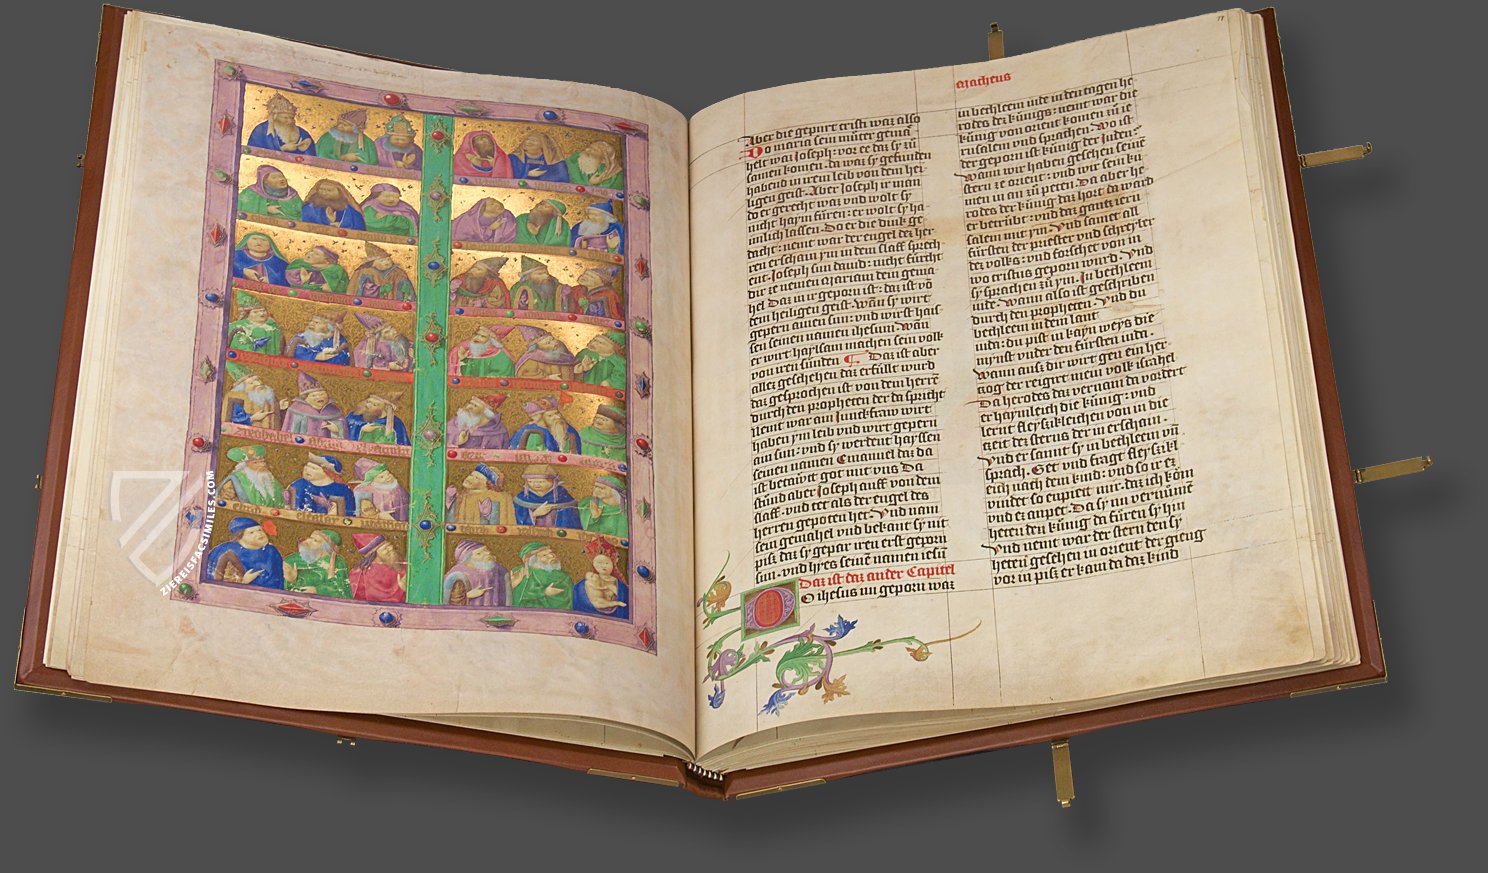 Matheus
Aber die gepurt cristi waz also
Do maria sein muter gema
helt waz Joseph: vor ee daz sy zu
samen komen. da wart sy gefunden
habend in irem leib von dem hei
ligen geist. Aber Joseph ir man
do er gerecht waz vnd wolt sy
nicht haym füren: er wolt sy ha
imlich lassen. Do er die dink ge
dacht: nemt war der engel dez her
ren erschain ym in dem slaff sprech
ent. Joseph sun dauid: nicht fürcht
dir ze nemen mariam dein gema
hel. Daz in ir geporn ist: daz ist vō
dem heiligen geist. Wann sy wirt
gepern ainen sun: vnd wirst hais
sen seinen namen ihesum. Wan
er wirt haylsam machen sein volk
von iren sünden ¶ Daz ist aber
allez geschehen daz erfüllt wurd
daz gesprochen ist von dem herrē
durch den propheten der da spricht
Nemt war ain Junckfraw wirt
haben ym leib vnd wirt gepern
ain sun: vnd sy werdent hayssen
seinen namen Emanuel daz da
ist betawtt got mit vns. Da
stund aber Joseph auff von dem
slaff. vnd tet als der engel des
herren gepoten het. Vnd nam
sein gemahel vnd bekant sy nit
piss daz sy gepar iren erst geporn
sun. vnd hyes seinē namen iesum
Daz ist daz ander Capitel
Do ihesus nu geporn war
in bethleem iude in den tagen he
rodes dez künigs: nemt war die
künig von orient komen zu ie
rusalem vnd sprachen. Wo ist
der geporn ist künig der Juden.
Wann wir haben gesehen seinē
stern ze orient: vnd wir sein ku
men in an zu peten. Da aber he
rodes der künig daz hort da ward
er betrübt: vnd daz gantz ieru
salem mit ym. Vnd samet all
fürsten der priester vnd schreyber
dez volks: vnd forschet von in
wo cristus geporn wurd. Vnd
sy sprachen zu ym. In bethleem
iude. Wann also ist geschriben
durch den propheten. Vnd du
bethleem in dem lant
iuda: du pist in kayn weys die
mynst vnder den fürsten iuda.
Wann auss dir wirt gen ein her
tzog der reigirt mein volk israhel
Da herodes daz vernam da vordert
er haymleich die künig: vnd
lernt fleyzzikleichen von in die
tzeit dez sterns der in erschain.
Vnd er sannt sy in bethleem vn̄
sprach. Get vnd fragt fleyzzikl
eich nach dem kind: vnd so ir ez
vindet so enpiett mir. daz ich kom
vnd ez anpet. Da sy in vernumē
heten den künig da füren sy hin
Vnd nemt war der stern den sy
heten gesehen in orient der gieng
vor in piss er kam da daz kind
ZIEREISFACSIMILES.COM